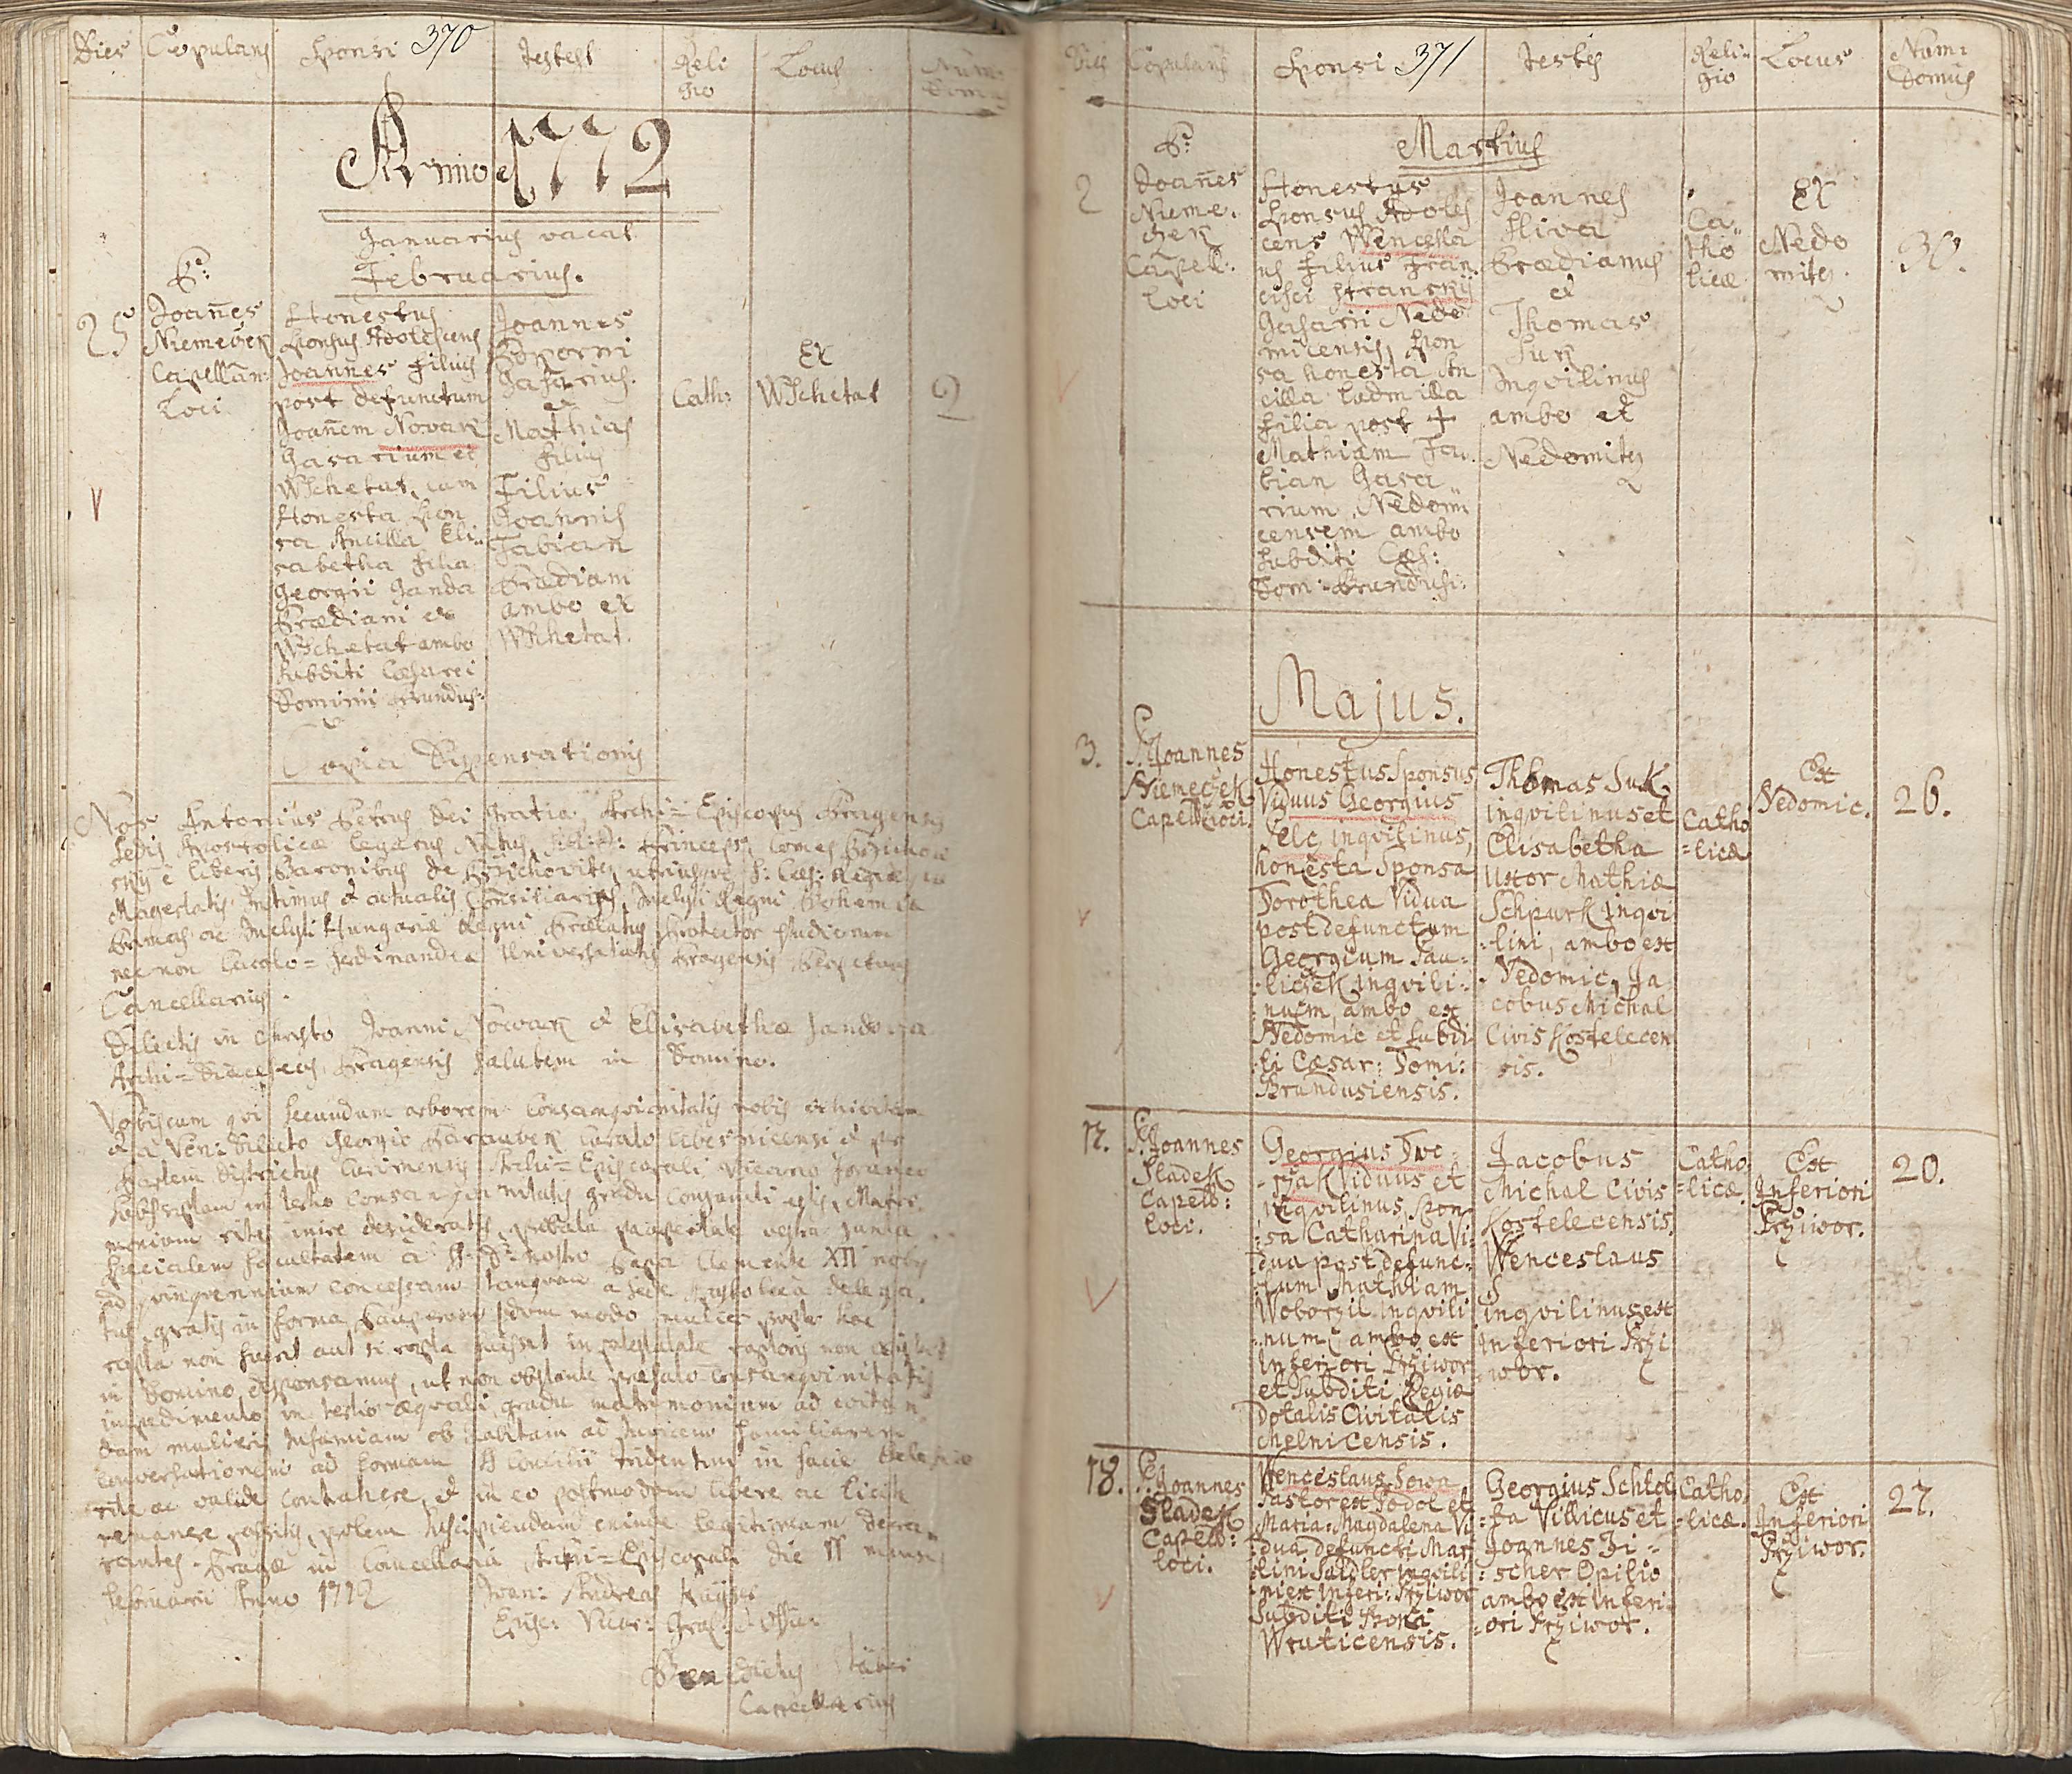 Dies
Copulans
Sponsi 370
Testes
Reli
gio
Locus
Anno 1772
Januarius vacat
Februarius.
25
P:
Joañes
Niemeček
Capellan:
Loci
Honestus
Sponsus Adolescens
Joannes Filius
post defunctum
Joañem Novak
Gasarium ex
Wschetat, cum
Honesta Spon
sa Ancilla Eli:
sabetha filia
Georgii Janda
Prædiani ex
Wschetat ambo
Subditi Cæsarei
Dominii Brandus:
Joannes
Gasarius.
et
Mathias
Filius
Joannis
Fabian
Prædiani
ambo ex
Wschetat.
Cath:
Ex
Wschetat
2
Copia Dispensationis
Nos Antonius Petrus Dei gratia Archi=Episcopus Pragensis
Sedis Apostolicæ Legatus Natus, S:R:I: Princeps, Comes Przichow
sky è liberis Baronibus de Przichowitz, utriusque S: Cæs: Regiæ
Magestatis Intimus et actualis Consiliarius, Inclyti Regni Bohemiæ
Primas ac Inclyti Hungariæ Regni Prælatus, Protector Studiorum
nec non Carolo=Ferdinandeæ Universitatis Pragensis Perpetuus
Cancellarius.
Dilectis in Christo Joanni Nowak et Elisabethæ Jandova
Archi=Diæceseos Pragensis salutem in Domino.
Vobiscum qui secundum arborem Consangvinitatis nobis exhibitam
et à Ven: Dilecto Georgio Curato et pro
partem Districtus Archi=Episcopali Vicario Foraneo
subscriptam in tertio consangvinitatis gradu conjuncti estis, Matri:
monium rite inire desideratis,
specialem facultatem à SS: D: nostro Papa Clemente XIV nobis
ad quinquennium concessam tanquam a Sede Apostolica delega:
tus, gratis in forma Pauperum dum modo mulier propter hoc
rapta non fuerit aut si rapta fuisset in potestate raptoris non existat
in Domino dispensamus, ut non obstante præfato consangvinitatis
impedimento in tertio æquali gradu matrimonium ad evitan
dam mulieris infamiam ob habitam ad invicem familiarem
conversationem ad formam S Concilii Tridentini in facie Ecclesiæ
rite ac valide contrahere, et in eo postmodum libere ac licite
remanere possitis, prolem suscipiendam exinde legitimam decer:
nentes. Pragæ in Cancellaria Archi=Episcopali die 11 mensis
Februarii Anno 1772
Joan: Andreas Kayser
Episc: Vicar: Gral: et Offic:
Benedictus
Cancellarius
Dies
Copulans
Sponsi 371
Testes
Reli=
gio
Locus
Num:
Domus
Martius
2
P:
Joañes
Nieme:
czek
Capel:
Loci
Honestus
Sponsus Adoles
cens Wencesla
us filius Fran:
cisci Stransky
Gasarii Nedo
micensis, Spon
sa honesta An
cilla Ludmilla
filia post +
Mathiam Fa:
bian Gasa
rium Nedomi
censem ambo
Subditi Cæs:
Dom: Brandusi:
Joannes
Sliva
Prædianus
et
Thomas
Suk
Inqvilinus
ambo ex
Nedomitz
Ca=
tho
licæ
Ex
Nedo
mitz.
30.
Majus.
3.
P. Joannes
Niemeczek
Capell: loci.
Honestus Sponsus
Viduus Georgius
Pelc, inqvilinus,
honesta Sponsa
Dorothea Vidua
post defunctum
Georgium Pau=
=liczek inqvili:
:num, ambo ex
Nedomic et Subdi
:ti Cæsar: Domi:
Brandusiensis.
Thomas Suk
inqvilinus et
Elisabetha
Uxor Mathiæ
Schpurk inqvi
:lini, ambo ex
Nedomic, Ja
cobus Michal
Civis Kostelecen
sis.
Catho
=licæ
Ex
Nedomic.
26.
17.
P. Joannes
Sladek
Capell:
loci.
Georgius Dwo=
=rzak Viduus et
inqvilinus, Spon
:sa Catharina Vi:
dua post defunc:
:tum Mathiam
Woborzil inqvili
:num, ambo ex
Inferiori Przíwor
et Subditi Regiæ
Dotalis Civitatis
Melnicensis.
Jacobus
Michal Civis
Kostelecensis,
Wenceslaus
S
inqvilinus ex
Inferiori Przi
:wor.
Catho
=licæ
Ex
Inferiori
Przíwor.
20.
18.
P. Joannes
Sladek
Capell:
loci.
Wenceslaus Sowa
Pastor ex Podol et
Maria=Magdalena Vi
:dua defuncti Mar
:tini Saidler inqvili
:ni ex Inferi: Przíwor
Subditi Sponsi
Wruticensis.
Georgius Schtol
=ba Villicus et
Joannes Fi=
=scher Opilio
ambo ex Inferi=
=ori Przíwor.
Catho
=licæ.
Ex
Inferiori
Przíwor.
27.